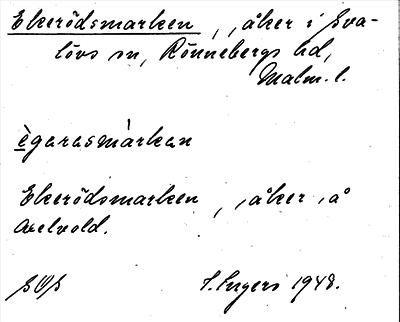 Ekerödsmarken, åker i Sva-
lövs sn, Rönnebergs hd,
Malm. l.
ègarasmàrkan
Ekerödsmarken, åker å
Axelvold.
SOS I. Ingers 1948.